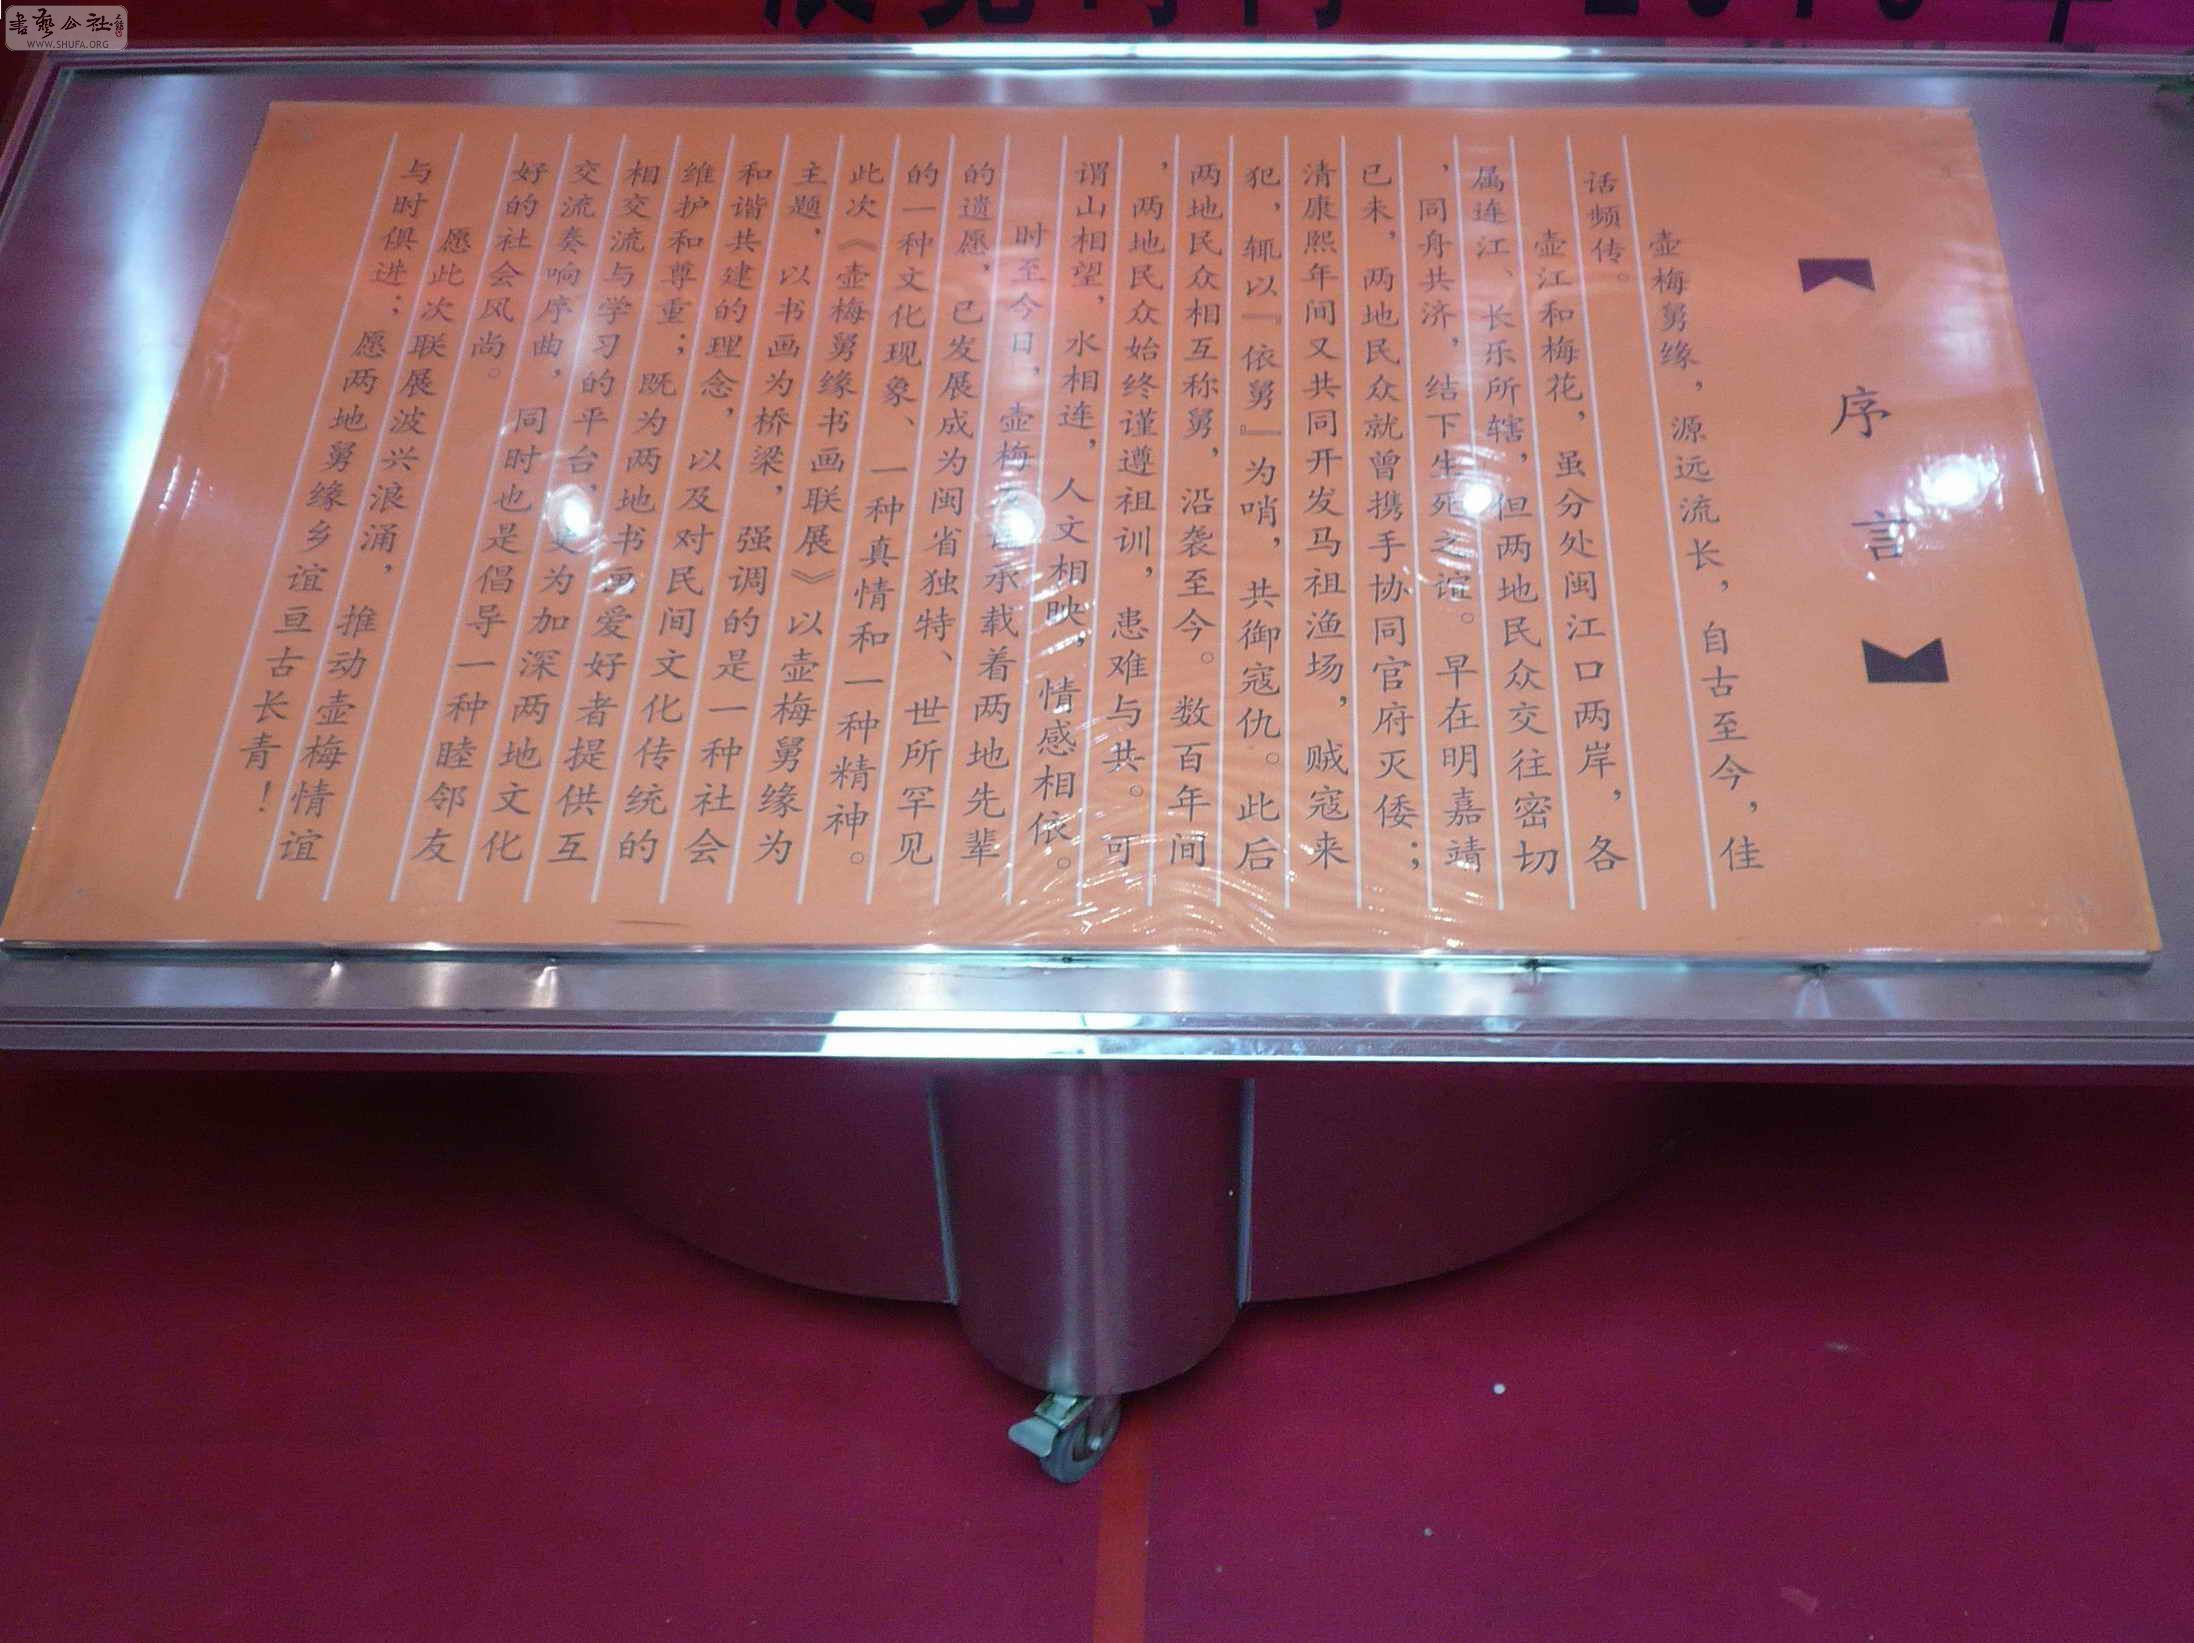 書藝公社
WWW.SHUFA.ORG
序言
壶梅舅缘，源远流长，自古至今，佳
话频传。
壶江和梅花，虽分处闽江口两岸，各
属连江、长乐所辖，但两地民众交往密切
，同舟共济，结下生死之谊。早在明嘉靖
已未，两地民众就曾携手协同官府灭倭；
清康熙年间又共同开发马祖渔场，贼寇来
犯，辄以『依舅』为哨，共御寇仇。此后
两地民众相互称舅，沿袭至今。数百年间
，两地民众始终谨遵祖训，患难与共。可
谓山相望，水相连，人文相映，情感相依。
时至今日，壶梅承载着两地先辈
的遗愿，已发展成为闽省独特、世所罕见
的一种文化现象、一种真情和一种精神。
此次《壶梅舅缘书画联展》以壶梅舅缘为
主题，以书画为桥梁，强调的是一种社会
和谐共建的理念，以及对民间文化传统的
维护和尊重；既为两地书画爱好者提供互
相交流与学习的平台，更为加深两地文化
交流奏响序曲，同时也是倡导一种睦邻友
好的社会风尚。
愿此次联展波兴浪涌，推动壶梅情谊
与时俱进；愿两地舅缘乡谊亘古长青！